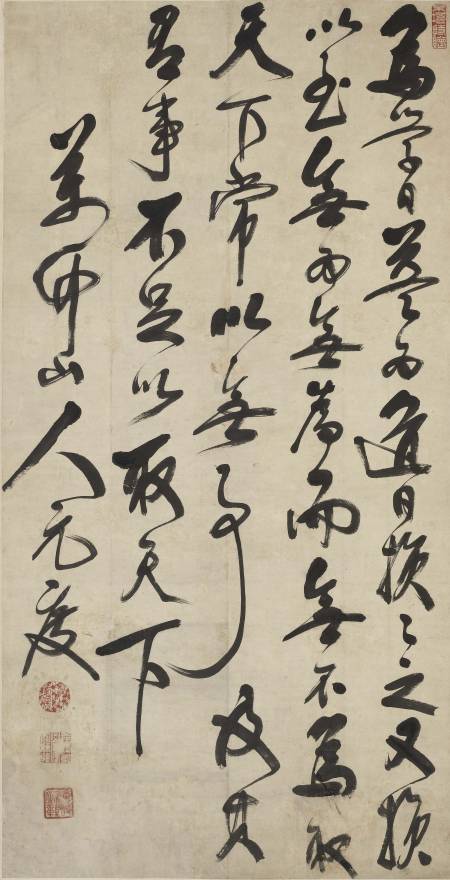 為學日益為道日損〻之又損
以至無為無為而無不為取
天下常以無事及其
有事不足以取天下
萬山人元度